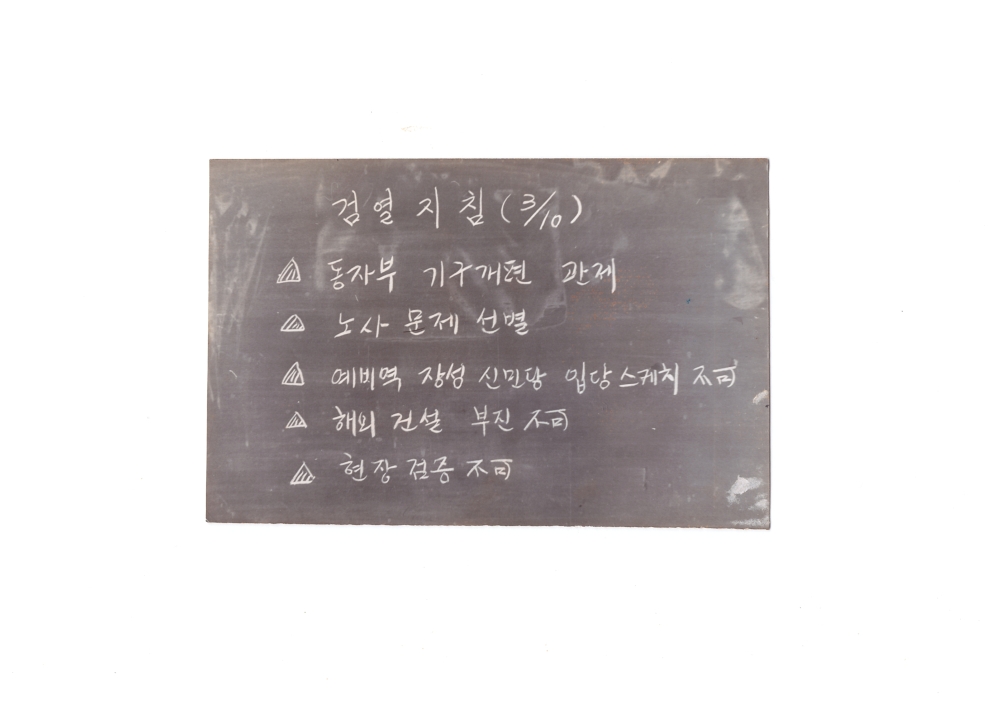 검열지침(3/10)
동자부 기구개편 관제
노사 문제 선별
예비역 장성 신민당 입당 스케치 不可
해외 건설 부진 不可
현장 검증 不可